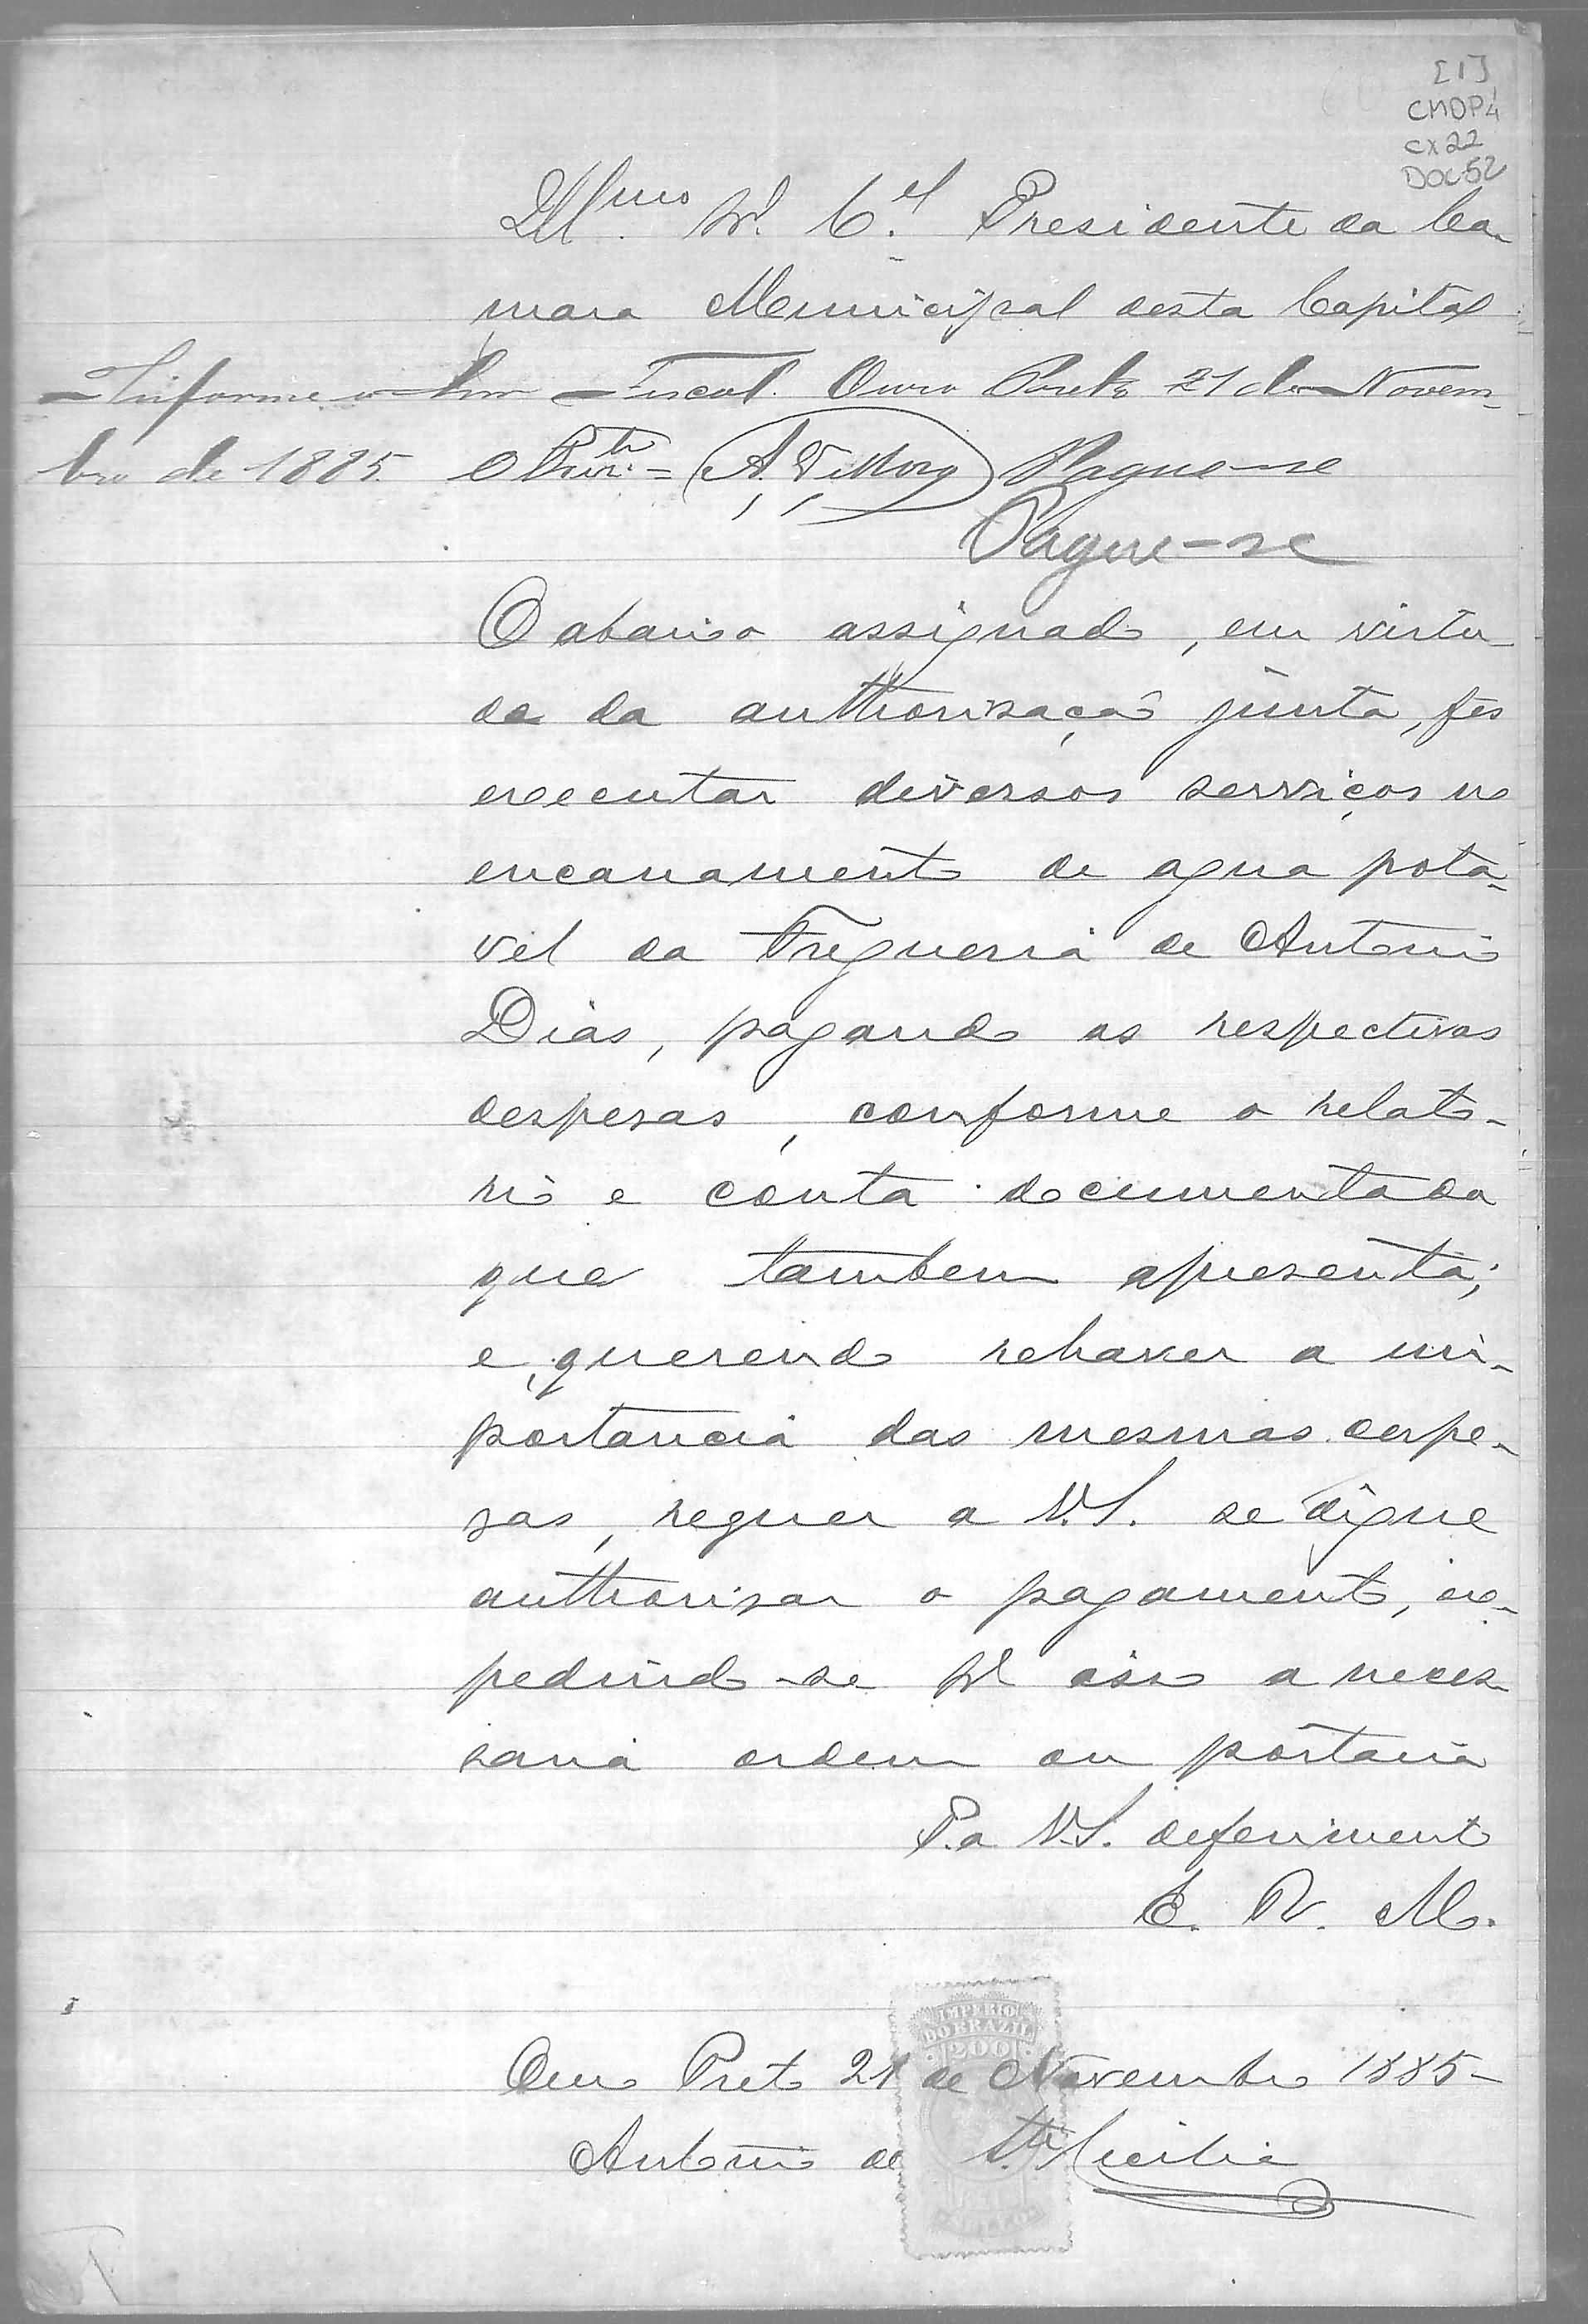 [1]
CMOP4
CX22
DOC52
Illmo Sr. Cel. Presidente da Ca-
mara Municipal desta Capital
Informe o Snr Fiscal. Ouro Preto 21 de Novem-
bro de 1885.
Pague-se
Pague-se
O abaixo assignado, em virtu-
de da authorisação junta, fes
executar diversos serviços no
encanamento de agua pota-
vel da Freguesia de Antonio
Dias, pagando as respectivas
despesas, conforme o relato-
rio e conta documentada
que tambem apresenta;
e, querendo rehaver a im-
portancia das mesmas despe-
sas, requer a V.S. se digne
authorisar o pagamento, ex-
pedindo-se pa isso a neces-
saria ordem ou portaria
P. a V.S. deferimento
E. R. M.
IMPERIO
DO BRAZIL
200
Ouro Preto 21 de Novembro 1885-
Antonio de Sta Cecilia